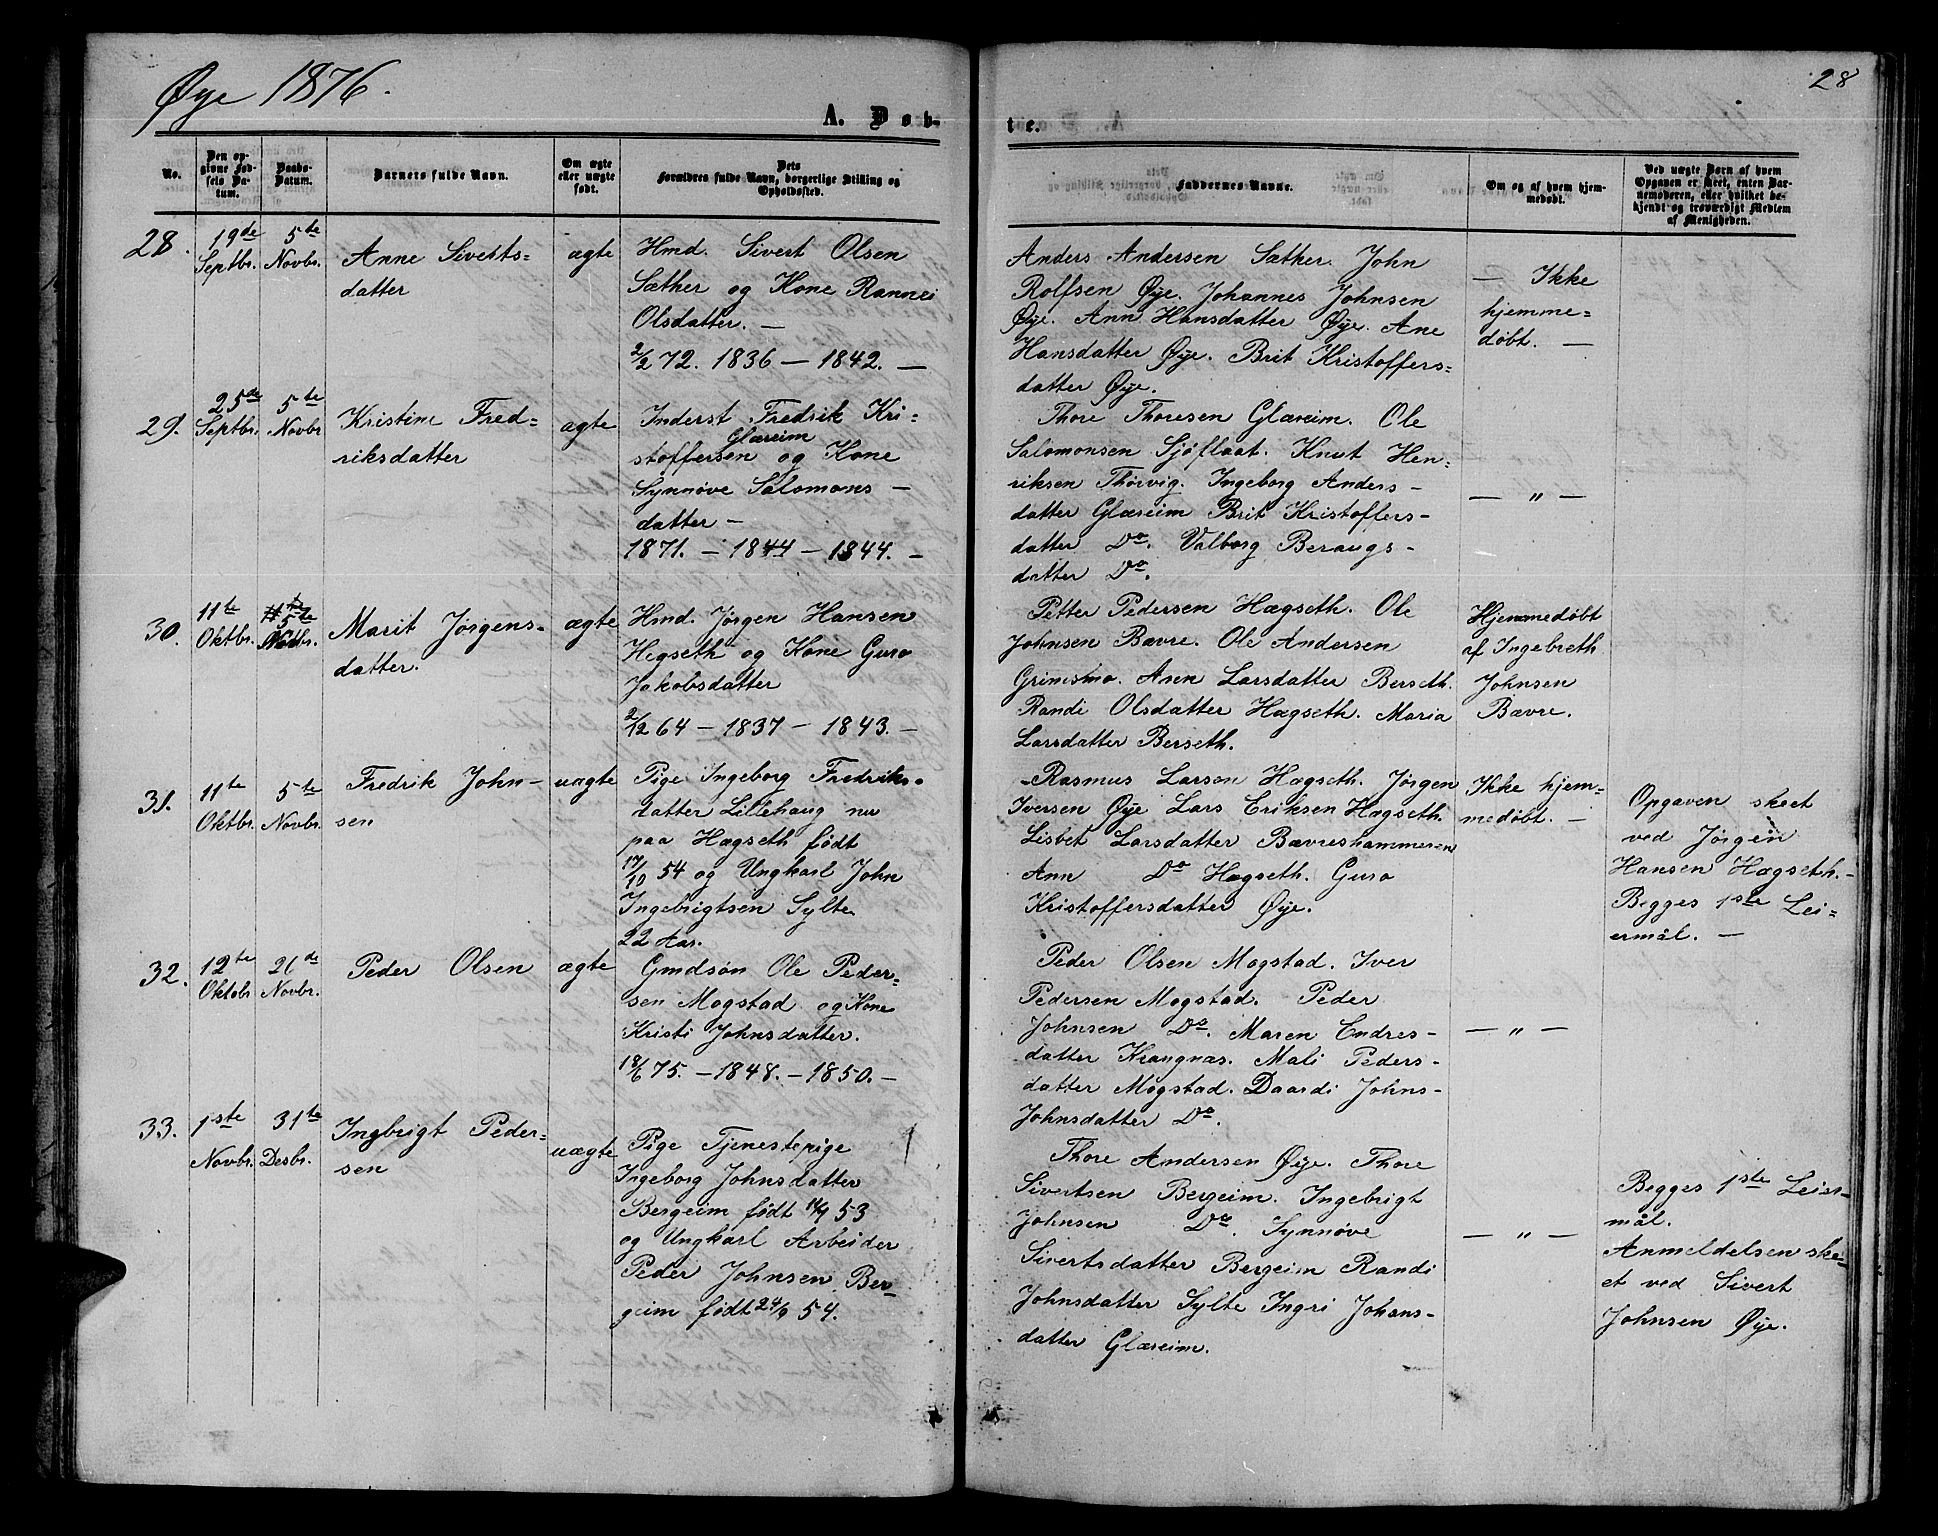 Øye 1876.
28
A. Døb-
te.
No.
Den op-
givne Fød-
sels Da-
tum.
Daabs-
Datum.
Barnets fulde Navn.
Om ægte
eller uægte
født.
Dets
Forældres fulde Navn, borgerlige Stilling og
Opholdssted.
Faddernes Navne.
Om og af hvem hjem-
medøbt.
Ved uægte Børn af hvem
Opgaven er skeet, enten Bar-
nemoderen, eller hvilket be-
kjendt og troværdigt Medlem
af Menigheden.
28.
19de
Septbr.
5te
Novbr.
Anne Siverts=
datter
ægte
Hmd. Sivert Olsen
Sæther og Kone Rannei
Olsdatter. —
2/2 72. 1836 — 1842. —
Anders Andersen Sæther. John
Rolfsen Øye. Johannes Johnsen
Øye. Ann Hansdatter Øye. Ane
Hansdatter Øye. Brit Kristoffers=
datter Øye.
— Ikke
hjemme=
døbt. —
29.
25de
Septbr.
5te
Novbr
Kristine Fred=
riksdatter
ægte
Inderst Fredrik Kri=
Glæreim
stoffersen og Kone
Synnøve Salomons —
datter —
1871. — 1844 — 1844. —
Thore Thoresen Glæreim. Ole
Salomonsen Sjøflaat. Knut Hen=
riksen Thørvig. Ingeborg Anders-
datter Glæreim Brit Kristoffers-
datter Do. Valborg Beraugs-
datter Do.
— " —
30.
11te
Oktbr.
5te
Novbr.
Marit Jørgens=
datter.
ægte
Hmd. Jørgen Hansen
Hegseth og Kone Guro
Jakobsdatter
2/12 64 — 1837 — 1843. —
Petter Pedersen Hægseth. Ole
Johnsen Bævre. Ole Andersen
Grimsmo. Ann Larsdatter Berseth.
Randi Olsdatter Hægseth. Maria
Larsdatter Berseth.
Hjemmedøbt
af Ingebreth
Johnsen
Bævre.
31.
11te
Oktbr.
5te
Novbr.
Fredrik John-
sen
uægte
Pige Ingeborg Fredriks-
datter Lillehaug nu
paa Hægseth født
17/10 54 og Ungkarl John
Ingebrigtsen Sylte
22 Aar.
Rasmus Larsen Hægseth. Jørgen
Iversen Øye Lars Eriksen Hægseth.
Lisbet Larsdatter Bævreshammeren
Ann Do Hægseth. Guro
Kristoffersdatter Øye.
Ikke hjem=
medøbt. —
Opgaven skeet
ved Jørgen
Hansen Hægseth. —
Begges 1ste Lei=
ermål. —
32.
12te
Oktobr
26de
Novbr.
Peder Olsen
ægte
Gmdsøn Ole Peder=
sen Mogstad og Kone
Kristi Johnsdatter.
18/6 75. — 1848. — 1850. —
Peder Olsen Mogstad. Iver
Pedersen Mogstad. Peder
Johnsen Do. Maren Endres-
datter Krangnæs. Mali Peders-
datter Mogstad. Daardi Johns-
Johnsdatter Do.
— " —
33.
1ste
Novbr.
31te
Desbr.
Ingbrigt Peder=
sen
uægte
Pige Tjenestepige
Ingeborg Johnsdatter
Bergeim født 14/9 53
og Ungkarl Arbeider
Peder Johnsen Ber-
geim født 24/6 54.
Thore Andersen Øye. Thore
Sivertsen Bergeim. Ingebrigt
Johnsen Do. Synnøve
Sivertsdatter Bergeim Randi
Johnsdatter Sylte Ingri Johans-
datter Glæreim.
— " —
Begges 1ste Leier-
mål.
Anmeldelsen ske-
et ved Sivert
Johnsen Øye.